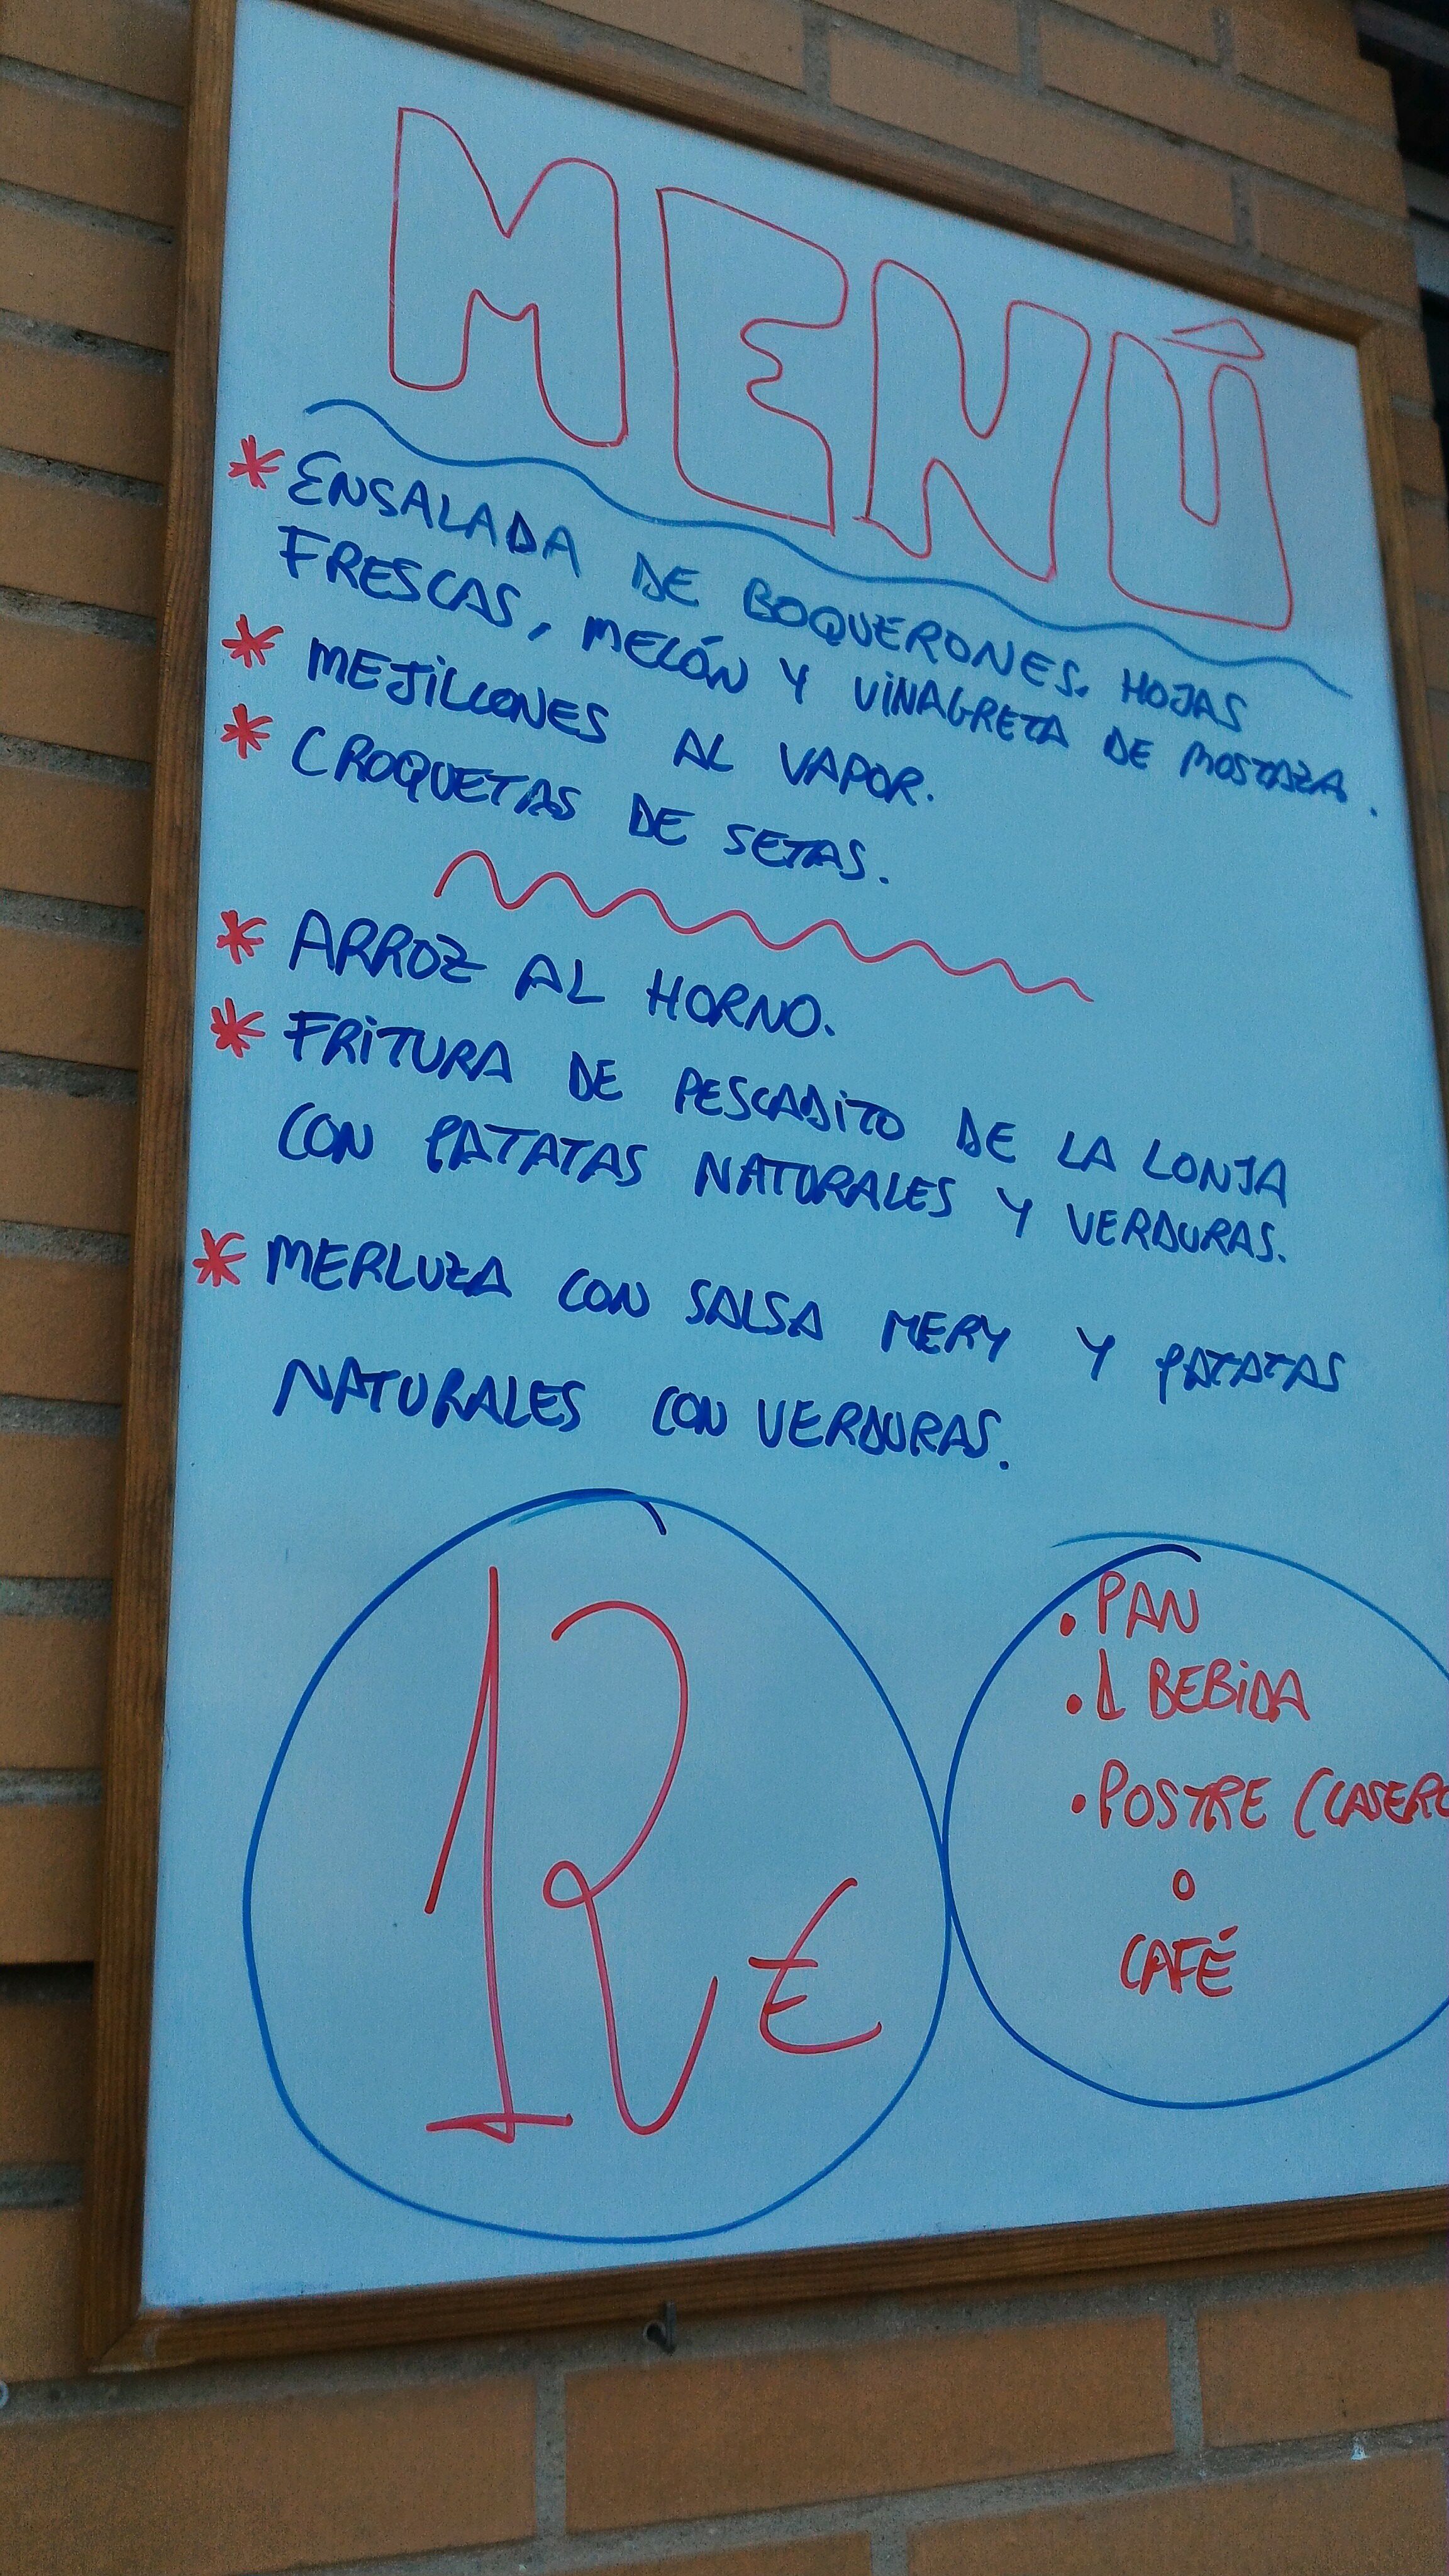 MENÚ
* ENSALADA DE BOQUERONES. HOJAS
FRESCAS, MELÓN Y VINAGRETA DE MOSTAZA.
* MEJILLONES AL VAPOR.
* CROQUETAS DE SETAS.
* ARROZ AL HORNO.
* FRITURA DE PESCADITO DE LA LONJA
CON PATATAS NATURALES Y VERDURAS.
* MERLUZA CON SALSA MERY Y PATATAS
NATURALES CON VERDURAS.
12 €
• PAN
• 1 BEBIDA
• POSTRE (CASERO
o
CAFÉ